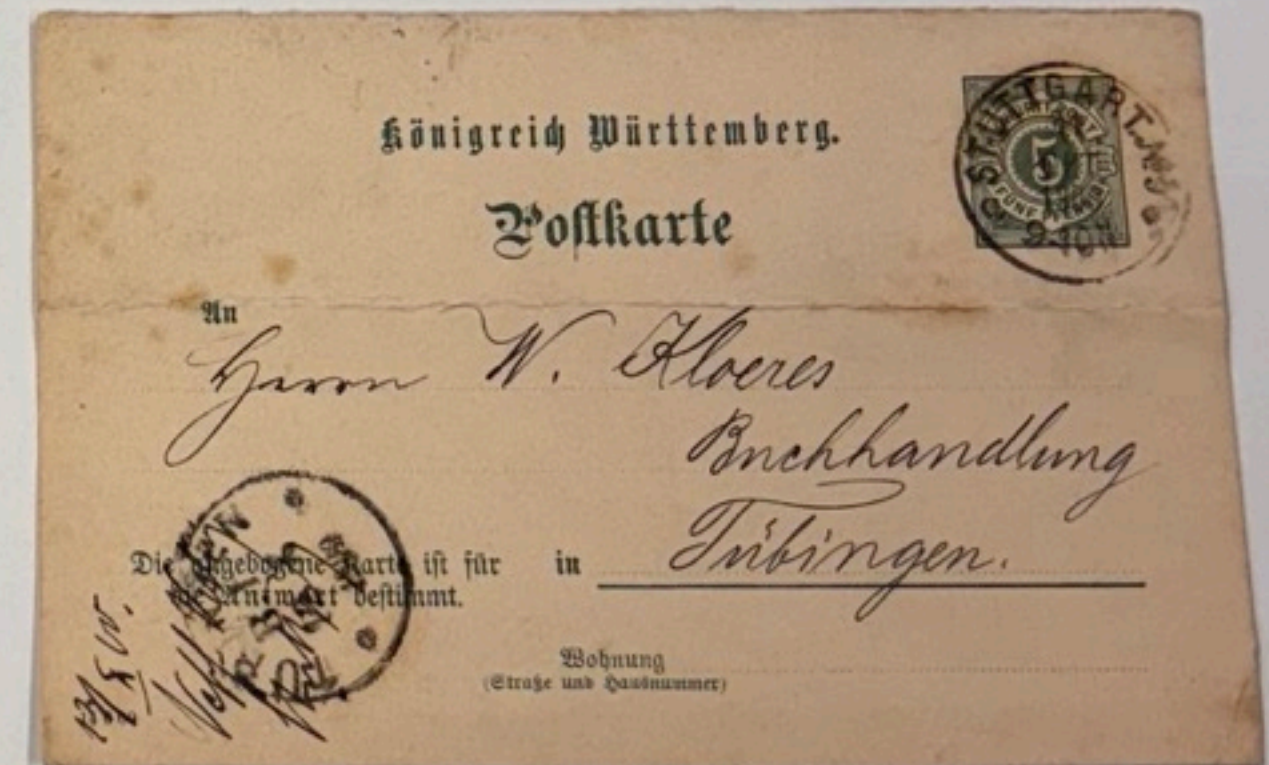 Königreich Württemberg.
Postkarte
STUTTGART
5
FÜNF
9-10
An
Herrn W. Kloeres
Buchhandlung
Die angebogene Karte ist für
die Antwort bestimmt.
in Tübingen.
Wohnung
(Straße und Hausnummer)